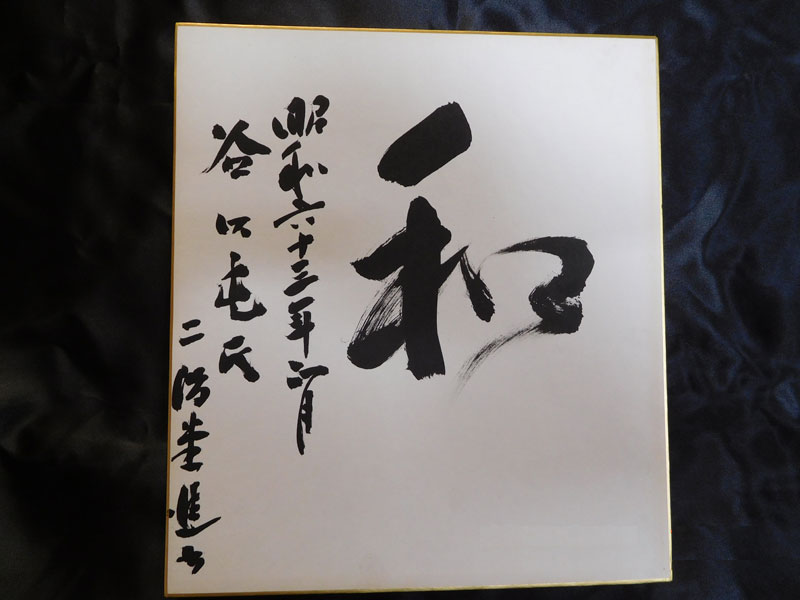 和
昭和六十三年 月
谷口 氏
二階堂進書